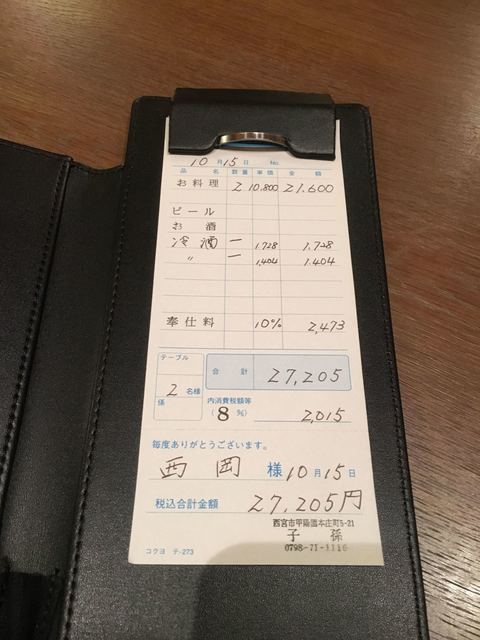 10月15日 No.
品名 数量 単価 金額
お料理 2 10,800 21,600
ビール
お酒
冷酒 一 1,728 1,728
〃 一 1,404 1,404
奉仕料 10% 2,473
テーブル
合計 27,205
2名様
係
内消費税額等
(8%) 2,015
毎度ありがとうございます。
西岡様 10月15日
税込合計金額 27,205円
西宮市甲陽園本庄町5-21
子孫
0798-71-1116
コクヨ テ-273